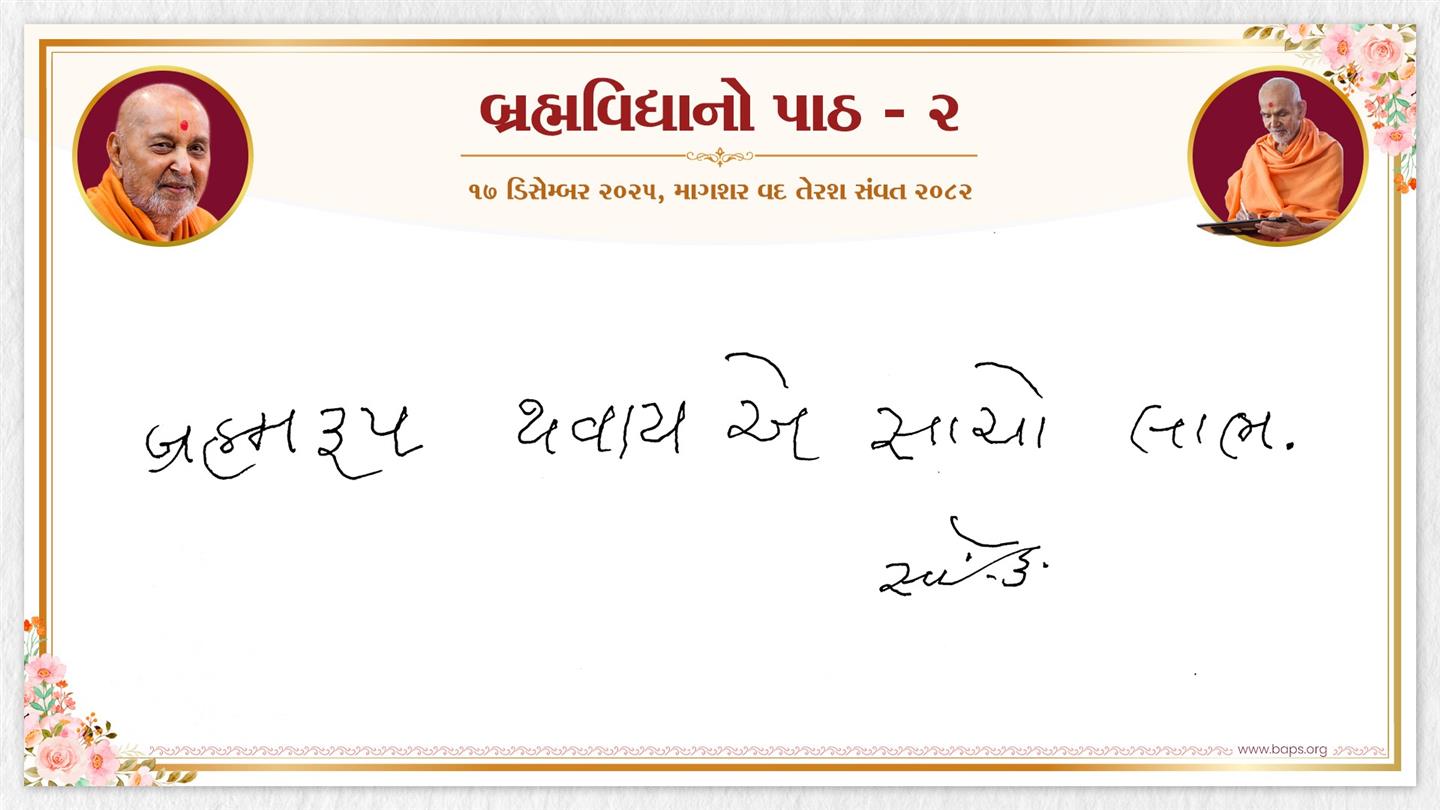 બ્રહ્મવિદ્યાનો પાઠ - ૨
૧૭ ડિસેમ્બર ૨૦૨૫, માગશર વદ તેરશ સંવત ૨૦૮૨
બ્રહ્મરૂપ થવાય એ સાચો લાભ.
www.baps.org